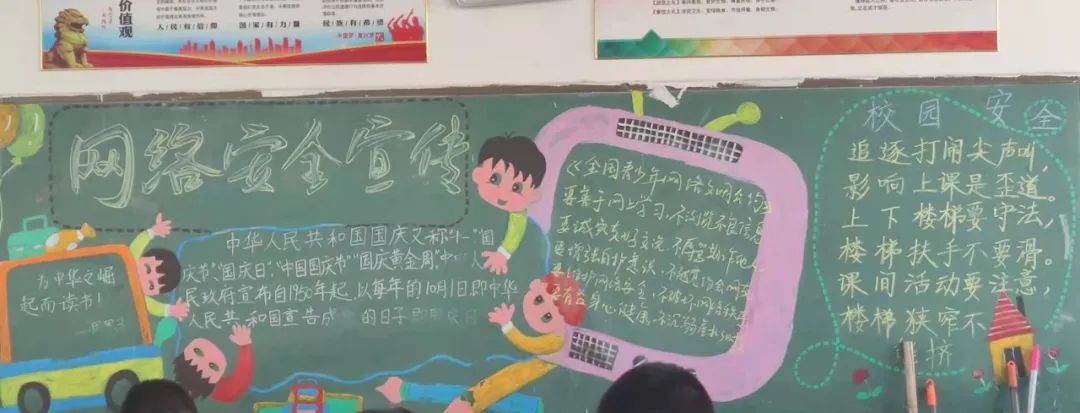 价值观
人|民|有|信|仰
国|家|有|力|量
民|族|有|希|望
网络安全宣传
为中华之崛
起而读书！
中华人民共和国国庆又称十一"国
庆节""国庆日""中国国庆节""国庆黄金周"
民政府宣布自1950年起，以每年的10月1日即中华
人民共和国宣告成 的日子
《全国青少年网络文明公约》
要善于网上学习，不浏览不良信息
要诚实友好交流，不侮辱欺诈他人
要增强自护意识，不随意约会网友
要维护网络安全，不破坏网络秩序
要有益身心健康，不沉溺虚拟时
校园安全
追逐打闹尖声叫，
影响上课是歪道。
上下楼梯要守法，
楼梯扶手不要滑。
课间活动要注意，
楼梯狭窄不
挤